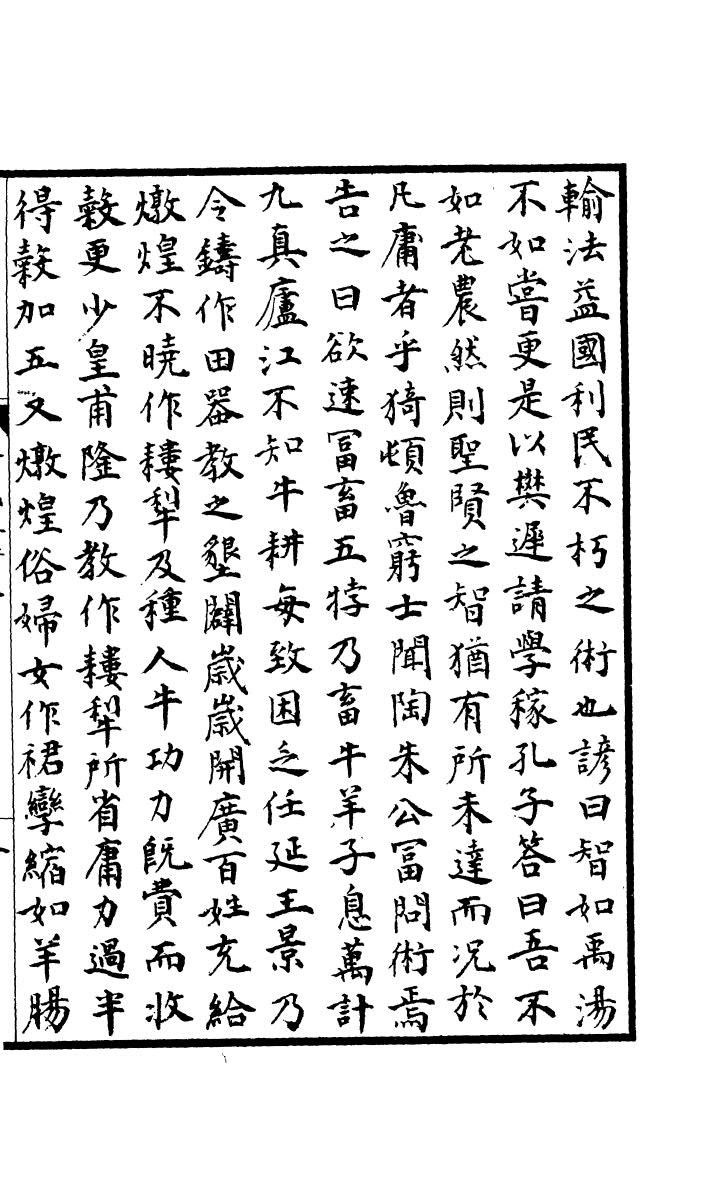 輸法益國利民不朽之術也諺曰智如禹湯
不如嘗更是以樊遲請學稼孔子答曰吾不
如老農然則聖賢之智猶有所未達而况於
凡庸者乎猗頓魯窮士聞陶朱公冨問術焉
告之曰欲速冨畜五牸乃畜牛羊子息萬計
九真廬江不知牛耕每致困乏任延王景乃
令鑄作田器教之墾闢歲歲開廣百姓充給
燉煌不曉作耬犂及種人牛功力既費而收
糓更少皇甫隆乃教作耬犂所省庸力過半
得糓加五又燉煌俗婦女作裙攣縮如羊腸